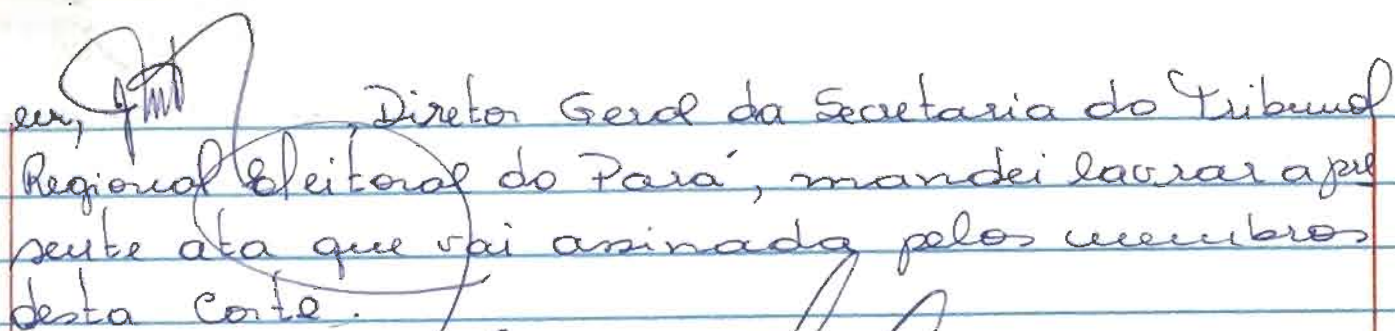 eu, Diretor Geral da Secretaria do Tribunal
Regional Eleitoral do Pará, mandei lavrar a pre
sente ata que vai assinada pelos membros
desta Corte.